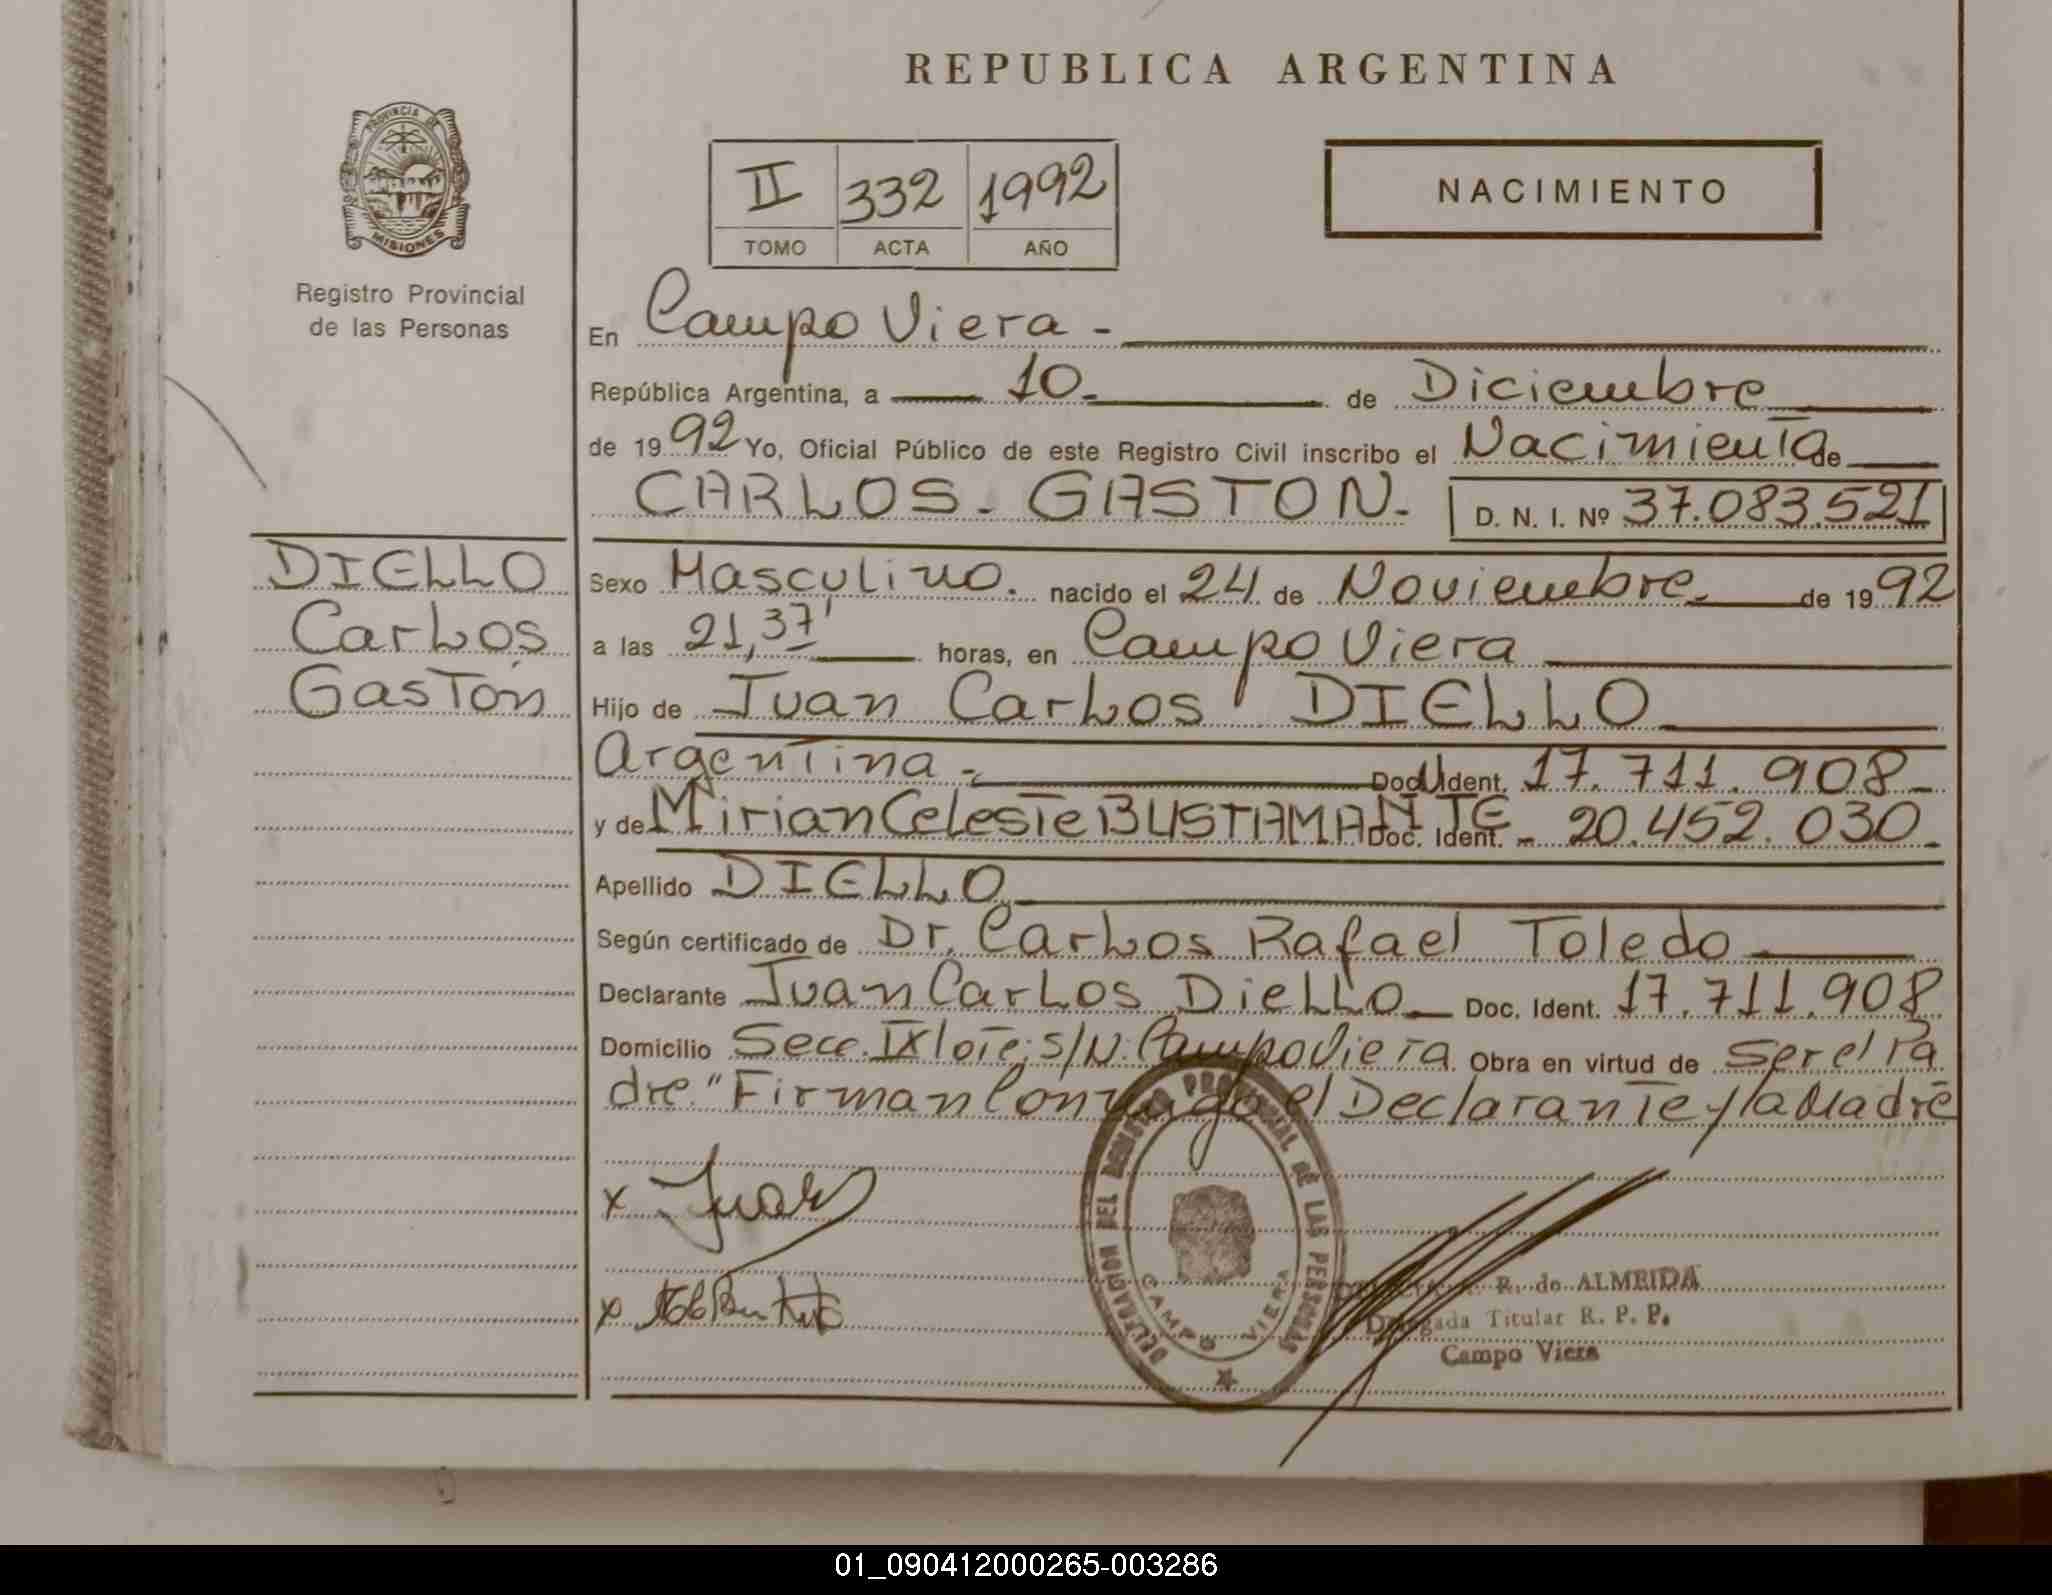 REPUBLICA ARGENTINA
PROVINCIA DE
MISIONES
Registro Provincial
de las Personas
II 332 1992
TOMO ACTA AÑO
NACIMIENTO
En Campo Viera -
República Argentina, a 10 de Diciembre
de 19 92 Yo, Oficial Público de este Registro Civil inscribo el Nacimiento de
CARLOS - GASTON - D. N. I. Nº 37.083.521
DIELLO
Carlos
Gastón
Sexo Masculino. nacido el 24 de Noviembre de 19 92
a las 21,37' horas, en Campo Viera
Hijo de Juan Carlos DIELLO
Argentina - Doc. Ident. 17.711.908 -
y de Mirian Celeste BUSTAMANTE Doc. Ident. - 20.452.030 -
Apellido DIELLO
Según certificado de Dr. Carlos Rafael Toledo
Declarante Juan Carlos Diello Doc. Ident. 17.711.908
Domicilio Secc. IX lote, S/N. Campo Viera Obra en virtud de ser el Pa
dre." Firman Conmigo el Declarante y la Madre
x Juan
x
DELEGACION DEL REGISTRO PROVINCIAL DE LAS PERSONAS
CAMPO VIERA
R. de ALMEIDA
Delegada Titular R. P. P.
Campo Viera
01_090412000265-003286